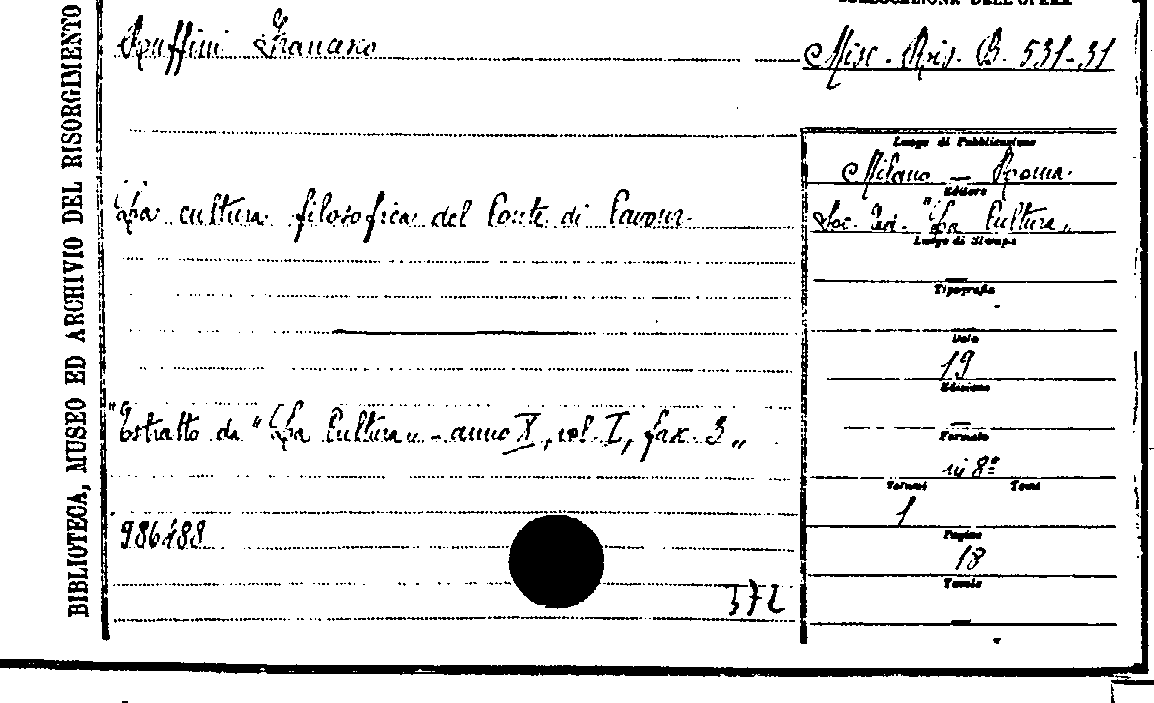 BIBLIOTECA, MUSEO ED ARCHIVIO DEL RISORGIMENTO
COLLOCAZIONE DELL'OPERA
Ruffini Francesco
Misc. Ris. B. 531-31
Luogo di Pubblicazione
Milano — Roma.
Editore
La cultura filosofica del Conte di Cavour.
Soc. Ed. "La Cultura„
Luogo di Stampa
—
Tipografia
-
Data
19
Edizione
—
"Estratto da "La Cultura„ - anno X, vol. I, fasc. 3„
Formato
in 8º
Volumi Tomi
1
986188
Pagine
18
Tavole
572
—